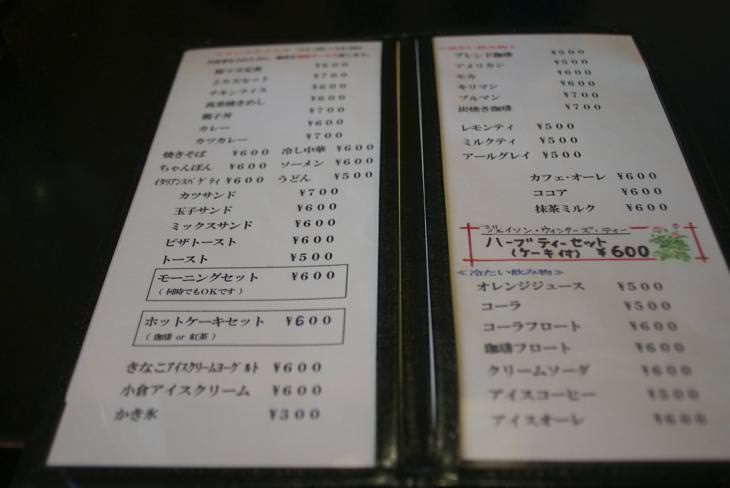 ¥600
とりカツセット ¥700
チキンライス ¥600
高菜焼きめし ¥700
親子丼 ¥600
カレー ¥600
カツカレー ¥700
焼きそば ¥600 冷し中華 ¥600
ちゃんぽん ¥600 ソーメン ¥600
イタリアンスパゲティ ¥600 うどん ¥500
カツサンド ¥700
玉子サンド ¥600
ミックスサンド ¥600
ピザトースト ¥600
トースト ¥500
モーニングセット ¥600
(何時でもOKです)
ホットケーキセット ¥600
(珈琲 or 紅茶)
きなこアイスクリームヨーグルト ¥600
小倉アイスクリーム ¥600
かき氷 ¥300
ブレンド珈琲 ¥500
アメリカン ¥500
モカ ¥600
キリマン ¥600
ブルマン ¥700
炭焼き珈琲 ¥700
レモンティ ¥500
ミルクティ ¥500
アールグレイ ¥500
カフェ・オーレ ¥600
ココア ¥600
抹茶ミルク ¥600
ジェイソン・ウィンターズ・ティー
ハーブティーセット
(ケーキ付) ¥600
<冷たい飲み物>
オレンジジュース ¥500
コーラ ¥500
コーラフロート ¥600
珈琲フロート ¥600
クリームソーダ ¥600
アイスコーヒー ¥500
アイスオーレ ¥600